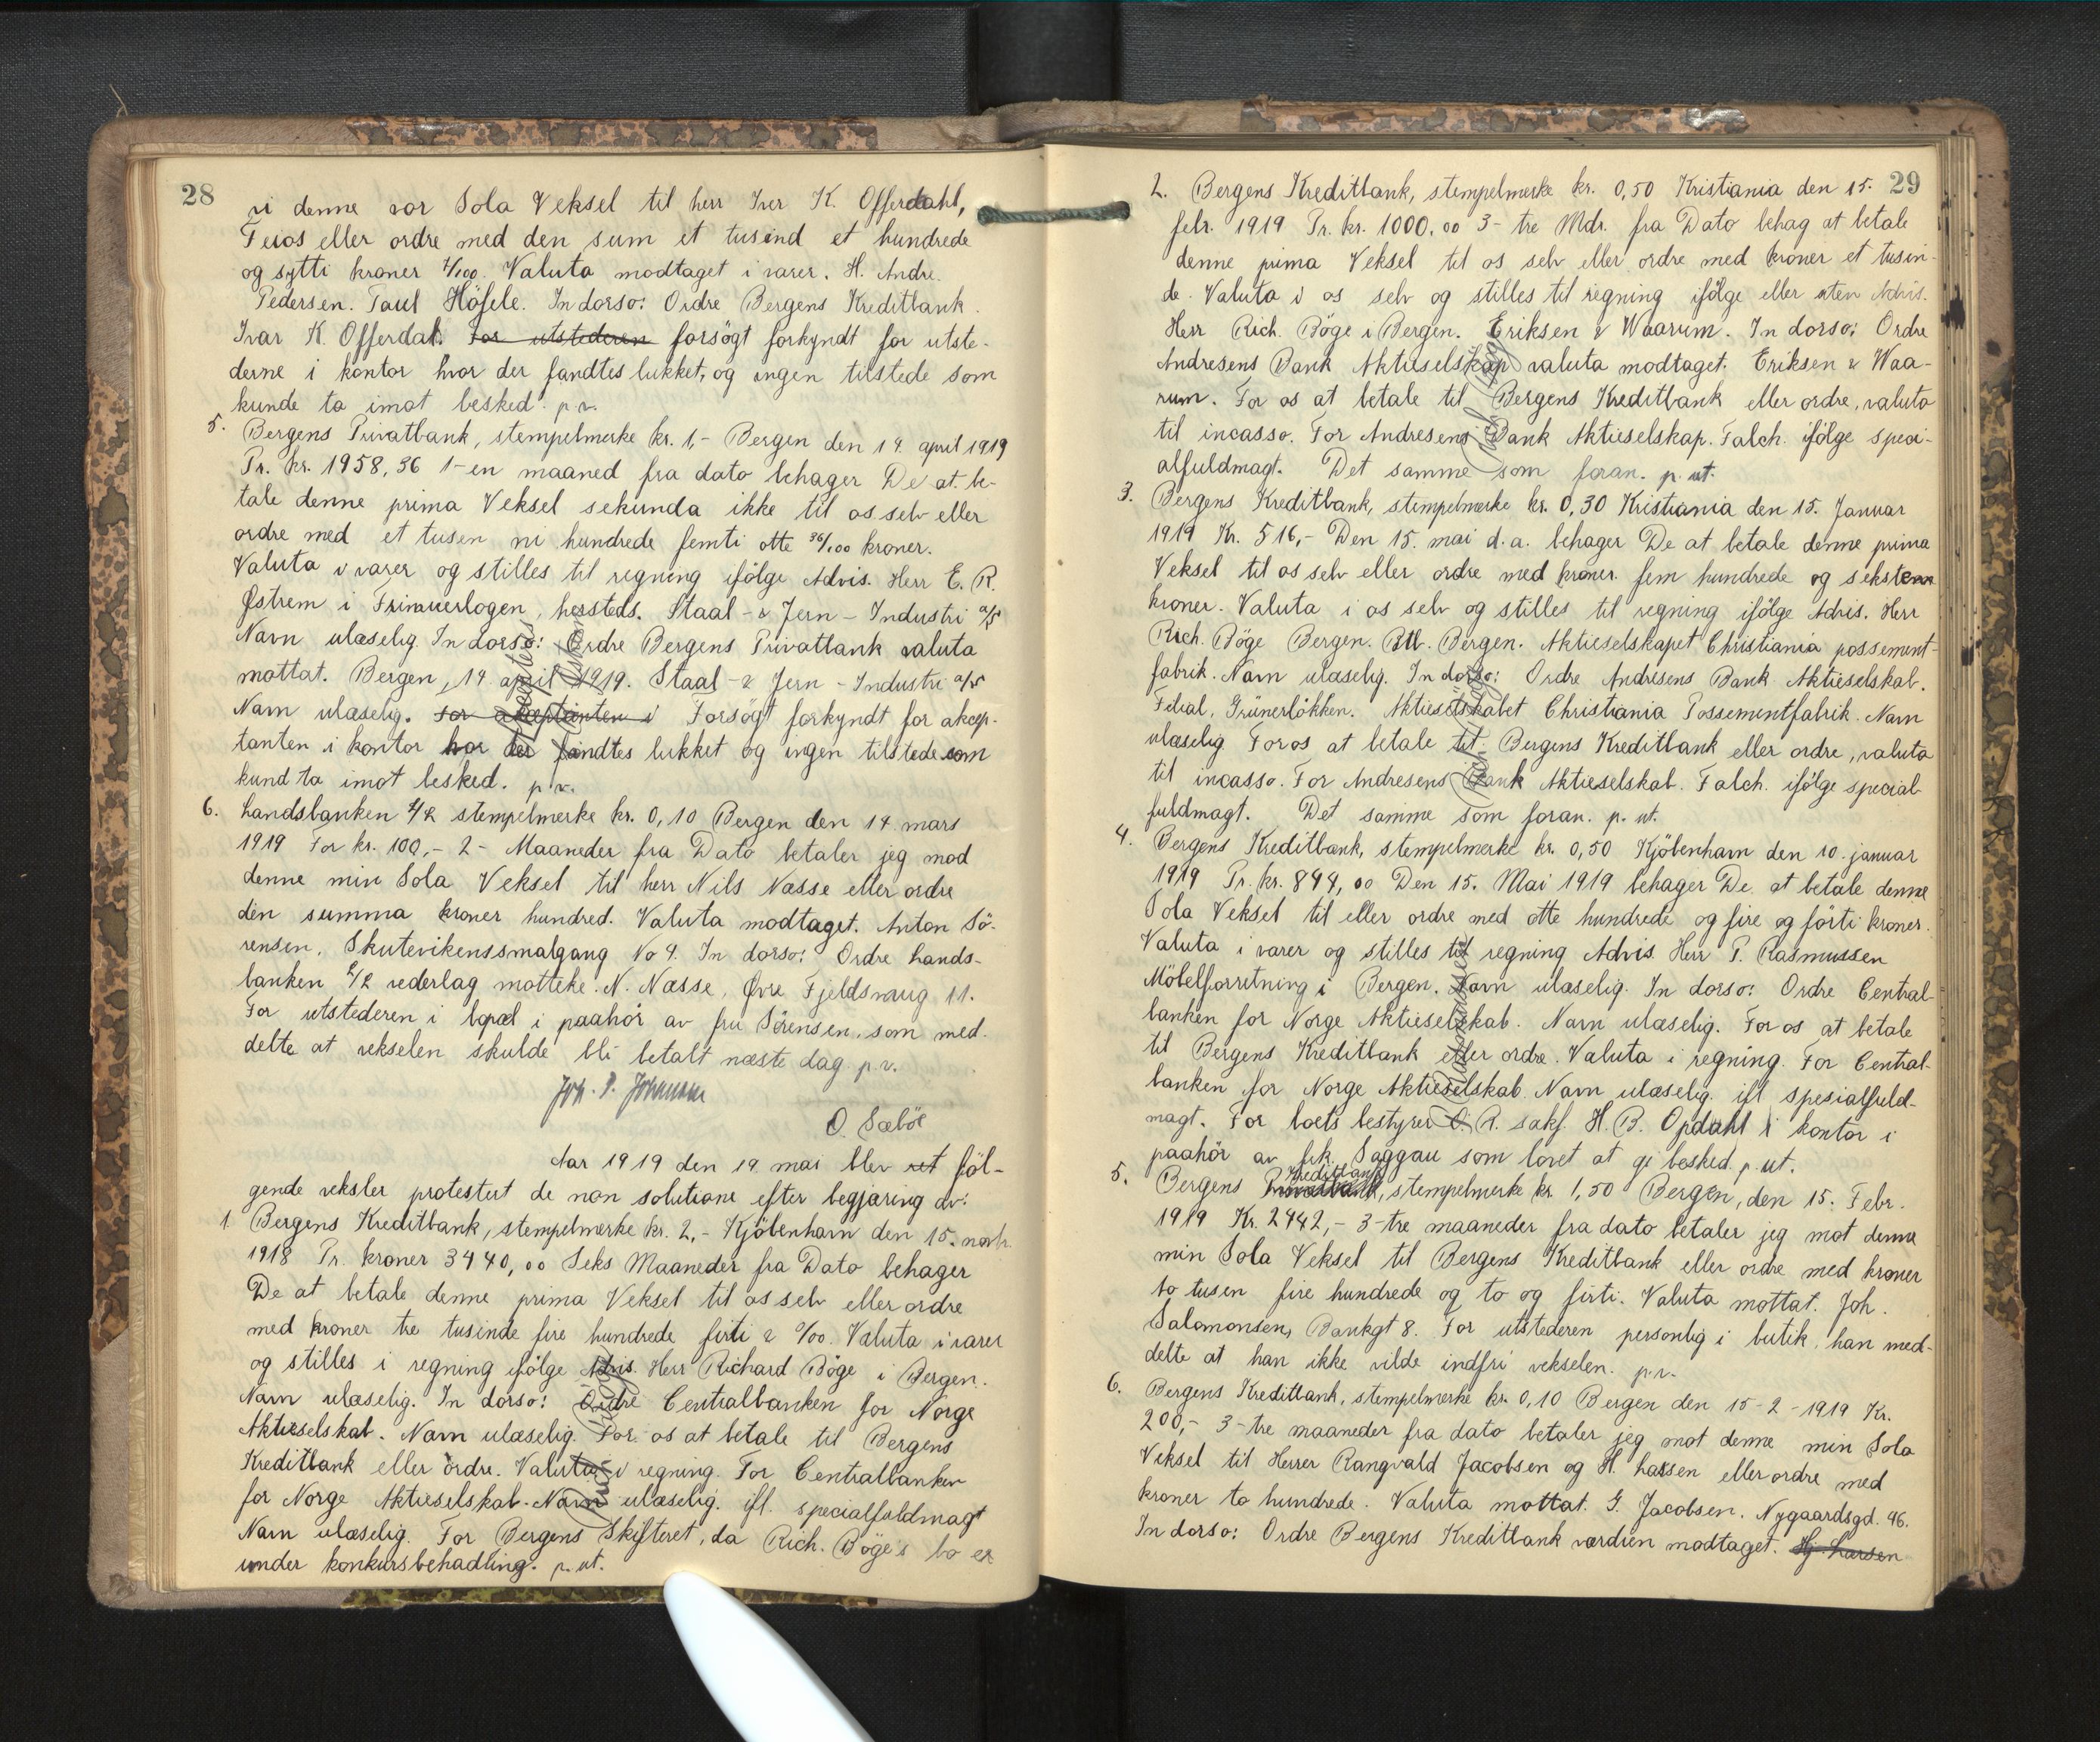 28
vi denne vor Sola Veksel til herr Iver K. Offerdahl,
Feios eller ordre med den sum et tusind et hundrede
og sytti kroner 4/100. Valuta modtaget i varer. H. Andr.
Pedersen. Paul Höfele. In dorso: Ordre Bergens Kreditbank.
Ivar K. Offerdal. For utstederen forsögt forkyndt for utste-
derne i kontor hvor der fandtes lukket, og ingen tilstede som
kunde ta imot besked. p.v.
5. Bergens Privatbank, stempelmerke kr. 1,- Bergen den 14. april 1919
Pr. kr. 1958,36 1-en maaned fra dato behager De at be-
tale denne prima Veksel sekunda ikke til os selv eller
ordre med et tusen ni hundrede femti otte 36/100 kroner.
Valuta i varer og stilles til regning ifölge Advis. Herr E. R.
Østrem i Frimuerlogen, hersteds. Staal- & Jern-Industri a/s
Navn ulæselig. In dorso: Ordre Bergens Privatbank valuta
mottat. Bergen, 14 april 1919. Staal- & Jern-Industri a/s
Navn ulæselig. For akceptanten i Forsögt forkyndt for akcep-
tanten i kontor hvor der fandtes lukket og ingen tilstede som
kund ta imot besked. p.v.
6. Landsbanken A/L stempelmerke kr. 0,10 Bergen den 14. mars
1919 For kr. 100,- 2- Maaneder fra Dato betaler jeg mod
denne min Sola Veksel til herr Nils Næsse eller ordre
den summa kroner hundred. Valuta modtaget. Anton Sö-
rensen, Skutevikenssmalgang No 4. In dorso: Ordre Lands-
banken A/L vederlag motteke. N. Næsse, Øvre Fjeldsmug 11.
For utstederen i bopæl i paahör av fru Sörensen, som med-
delte at vekselen skulde bli betalt næste dag. p.v.
Joh. P. Johnsen
O. Sæböe
Aar 1919 den 19 mai blev ret föl-
gende veksler protestert de non solutione efter begjæring av:
1. Bergens Kreditbank, stempelmerke kr. 2,- Kjöbenhavn den 15. novbr.
1918 Pr. kroner 3440,00 Seks Maaneder fra Dato behager
De at betale denne prima Veksel til os selv eller ordre
med kroner tre tusinde fire hundrede firti & 0/00. Valuta i varer
og stilles i regning ifölge Advis. Herr Richard Böge i Bergen.
Navn ulæselig. In dorso: Ordre Centralbanken for Norge
Aktieselskab. Navn ulæselig. For os at betale til Bergens
Kreditbank eller ordre. Valuta i regning. For Centralbanken
for Norge Aktieselskab. Navn ulæselig. ifl. specialfuldmagt
Navn ulæselig. For Bergens Skifteret, da Rich. Böge's bo er
under konkursbehadling. p. ut.
29
2. Bergens Kreditbank, stempelmerke kr. 0,50 Kristiania den 15.
febr. 1919 Pr. kr. 1000.00 3- tre Mdr. fra Dato behag at betale
denne prima Veksel til os selv eller ordre med kroner et tusin-
de. Valuta i os selv og stilles til regning ifölge eller uten Advis.
Herr Rich. Böge i Bergen. Eriksen & Waarum. In dorso: Ordre
Andresens Bank Aktieselskap valuta modtaget. Eriksen & Waa-
rum. For os at betale til Bergens Kreditbank eller ordre, valuta
til incasso. For Andresens Bank Aktieselskap. Falch. ifölge speci-
alfuldmagt. Det samme som foran. p. ut.
3. Bergens Kreditbank, stempelmerke kr. 0,30 Kristiania den 15. Januar
1919 Kr. 516,- Den 15. mai d.a. behager De at betale denne prima
Veksel til os selv eller ordre med kroner fem hundrede og seksten
kroner. Valuta i os selv og stilles til regning ifölge Advis. Herr
Rich. Böge Bergen. Btl. Bergen. Aktieselskapet Christiania possement-
fabrik. Navn ulæselig. In dorso: Ordre Andresens Bank Aktieselskab.
Filial, Grünerlökken. Aktieselskabet Christiania Possementfabrik. Navn
ulæselig. For os at betale til Bergens Kreditbank eller ordre, valuta
til incasso. For Andresens Bank Aktieselskab. Falch. ifölge special-
fuldmagt. Det samme som foran. p. ut.
4. Bergens Kreditbank, stempelmerke kr. 0,50 Kjöbenhavn den 10. januar
1919 Pr. kr. 844,00 Den 15. Mai 1919 behager De at betale denne
Sola Veksel til eller ordre med otte hundrede og fire ogförti kroner.
Valuta i varer og stilles til regning Advis. Herr P. Rasmussen
Möbelforretning i Bergen. Navn ulæselig. In dorso: Ordre Central-
banken for Norge Aktieselskab. Navn ulæselig. For os at betale
til Bergens Kreditbank eller ordre. Valuta i regning. For Central-
banken for Norge Aktieselskab. Navn ulæselig. ifl spesialfuld-
magt. For boets bestyrer O. R. sakf. H. B. Opdahl i kontor i
paahör av frk. Saggau som lovet at gi besked. p. ut.
5. Bergens Privatbank Kreditbank, stempelmerke kr. 1,50 Bergen, den 15. Febr.
1919 Kr. 2442,- 3-tre maaneder fra dato betaler jeg mot denne
min Sola Veksel til Bergens Kreditbank eller ordre med kroner
to tusen fire hundrede og to og firti. Valuta mottat. Joh.
Salomonsen, Bankgt 8. For utstederen personlig i butik, han med-
delte at han ikke vilde indfri vekselen. p.v.
6. Bergens Kreditbank, stempelmerke kr. 0,10 Bergen den 15-2-1919 Kr.
200,- 3-tre maaneder fra dato betaler jeg mot denne min Sola
Veksel til Herrer Rangvald Jacobsen og H. Larsen eller ordre med
kroner to hundrede. Valuta mottat. G. Jacobsen. Nygaardsgd. 96.
In dorso: Ordre Bergens Kreditbank værdien modtaget. Hj. Larsen